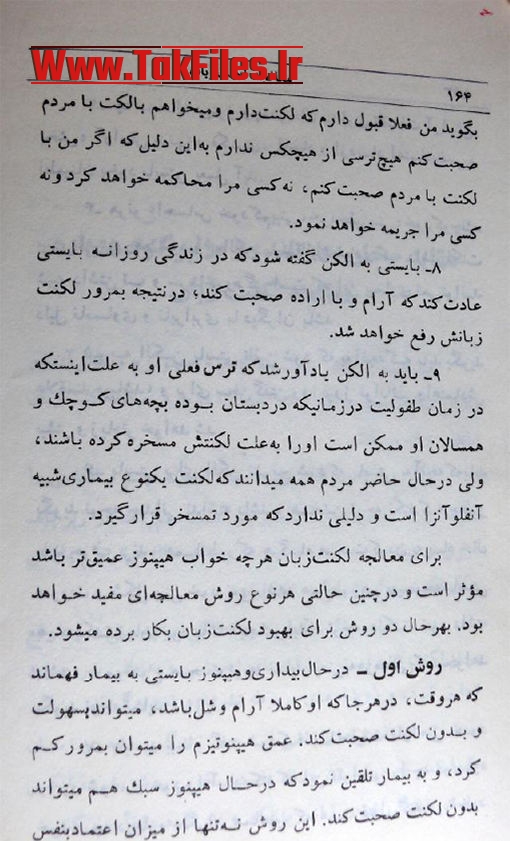 Www.TakFiles.ir
۱۶۴
بگوید من فعلا قبول دارم که لکنت‌دارم ومیخواهم بالکت با مردم
صحبت‌کنم هیچ‌ترسی از هیچکس ندارم به‌این دلیل‌که اگر من با
لکنت با مردم صحبت‌کنم، نه‌کسی مرا محاکمه خواهد کرد ونه
کسی مرا جریمه خواهد نمود.
۸ـ بایستی به الکن گفته شودکه در زندگی روزانه بایستی
عادت‌کندکه آرام و با اراده صحبت کند؛ درنتیجه بمرور لکنت
زبانش رفع خواهد شد.
۹ـ باید به الکن یادآورشدکه ترس فعلی او به علت‌اینستکه
در زمان طفولیت درزمانیکه دردبستان بوده بچه‌های کوچك و
همسالان او ممکن است اورا به‌علت لکنتش مسخره‌کرده باشند،
ولی درحال حاضر مردم همه میدانندکه‌لکنت یکنوع بیماری‌شبیه
آنفلوآنزا است و دلیلی نداردکه مورد تمسخر قرارگیرد.
برای معالجه لکنت‌زبان هرچه خواب هیپنوز عمیق‌تر باشد
مؤثر است و درچنین حالتی هرنوع روش معالجه‌ای مفید خواهد
بود. بهرحال دو روش برای بهبود لکنت‌زبان بکار برده میشود.
روش اول ـ درحال‌بیداری‌وهیپنوز بایستی به بیمار فهماند
که هروقت، درهرجاکه اوکاملا آرام وشل‌باشد، میتواندبسهولت
و بدون لکنت صحبت‌کند. عمق هیپنوتیزم را میتوان بمرورکم
کرد، و به بیمار تلقین نمودکه درحال هیپنوز سبك هم میتواند
بدون لکنت صحبت‌کند. این روش نه‌تنها از میزان اعتمادبنفس